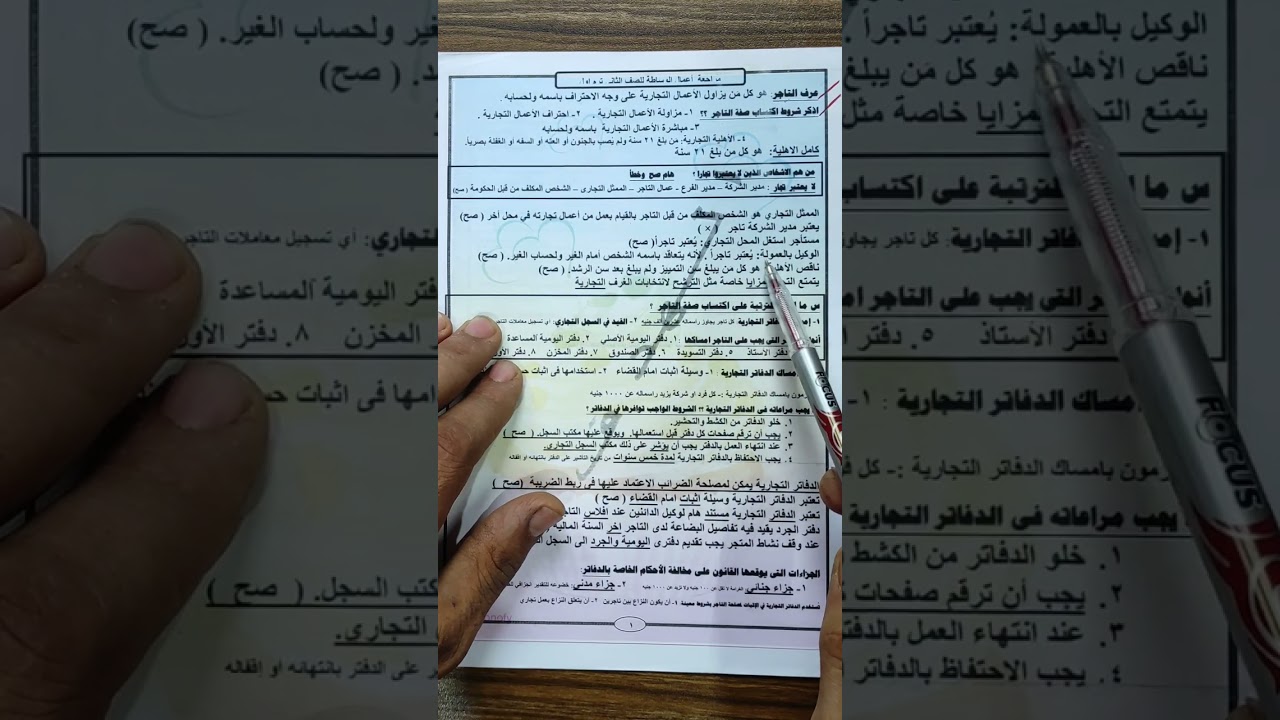 مراجعة أعمال الوساطة للصف الثانى ترم اول
عرف التاجر: هو كل من يزاول الأعمال التجارية على وجه الاحتراف باسمه ولحسابه .
اذكر شروط اكتساب صفة التاجر ؟؟ ١- مزاولة الأعمال التجارية . ٢- احتراف الأعمال التجارية .
٣- مباشرة الأعمال التجارية باسمه ولحسابه
٤- الأهلية التجارية: من بلغ ٢١ سنة ولم يصب بالجنون أو العته او السفه أو الغفلة بصرياً.
كامل الاهلية: هو كل من بلغ ٢١ سنة
من هم الاشخاص الذين لا يعتبروا تجارا ؟ هام صح وخطأ
لا يعتبر تجار : مدير الشركة – مدير الفرع - عمال التاجر – الممثل التجارى – الشخص المكلف من قبل الحكومة (صح)
الممثل التجاري هو الشخص المكلف من قبل التاجر بالقيام بعمل من أعمال تجارته في محل أخر ( صح)
يعتبر مدير الشركة تاجر ( × )
مستأجر استغل المحل التجاري: يُعتبر تاجراً( صح)
الوكيل بالعمولة: يُعتبر تاجراً . لأنه يتعاقد باسمه الشخص أمام الغير ولحساب الغير. ( صح)
ناقص الأهلية هو كل من يبلغ سن التمييز ولم يبلغ بعد سن الرشد. ( صح)
يتمتع التجار بمزايا خاصة مثل الترشح لانتخابات الغرف التجارية
س ما المترتبة على اكتساب صفة التاجر ؟
١- الدفاتر التجارية : كل تاجر يجاوز راسماله جنيه ٢- القيد في السجل التجاري: أي تسجيل معاملات التاجر
التى يجب على التاجر امساكها : ١. دفتر اليومية الاصلى ٢. دفتر اليومية المساعدة
دفتر الأستاذ ٥. دفتر التسويدة ٦. دفتر الصندوق ٧. دفتر المخزن ٨. دفتر
مساك الدفاتر التجارية : ١- وسيلة اثبات امام القضاء ٢- استخدامها فى اثبات
بامساك الدفاتر التجارية :- كل فرد او شركة يزيد راسماله عن ١٠٠٠ جنيه
يجب مراعاته فى الدفاتر التجارية ؟؟ الشروط الواجب توافرها في الدفاتر؟
١. خلو الدفاتر من الكشط والتحشير.
٢. يجب أن ترقم صفحات كل دفتر قبل استعمالها. ويوقع عليها مكتب السجل. ( صح )
٣. عند انتهاء العمل بالدفتر يجب أن يؤشر على ذلك مكتب السجل التجاري.
٤. يجب الاحتفاظ بالدفاتر التجارية لمدة خمس سنوات من تاريخ التاشير على الدفتر بانتهائه او إقفاله
الدفاتر التجارية يمكن لمصلحة الضرائب الاعتماد عليها في ربط الضريبة (صح )
تعتبر الدفاتر التجارية وسيلة اثبات امام القضاء ( صح )
تعتبر الدفاتر التجارية مستند هام لوكيل الدائنين عند افلاس
دفتر الجرد يقيد فيه تفاصيل البضاعة لدى التاجر اخر السنة المالية
عند وقف نشاط المتجر يجب تقديم دفترى اليومية والجرد الى السجل
الجزاءات التى يوقعها القانون على مخالفة الأحكام الخاصة بالدفاتر:
١- جزاء جنائي الغرامة لا تقل عن ١٠٠ جنيه ولا تزيد عن ١٠٠٠ جنيه ٢- جزاء مدني: خضوعه للتقدير الجزافي
تستخدم الدفاتر التجارية في الإثبات لمصلحة التاجر بشروط معينة ١- أن يكون النزاع بين تاجرين ٢- أن يتعلق النزاع بعمل تجاري
١
FOCUS